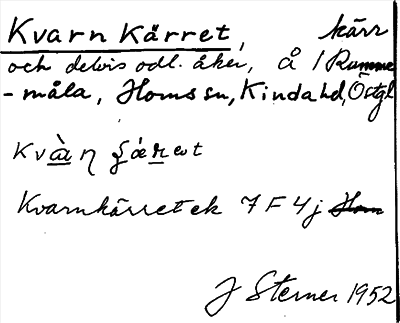 Kvarn Kärret, kärr
och delvis odl. åker, å / Rumme
- måla, Homs sn, Kinda hd, Östgl
Kvarnkärret ek 7 F 4 j Hom
J Sterner 1952